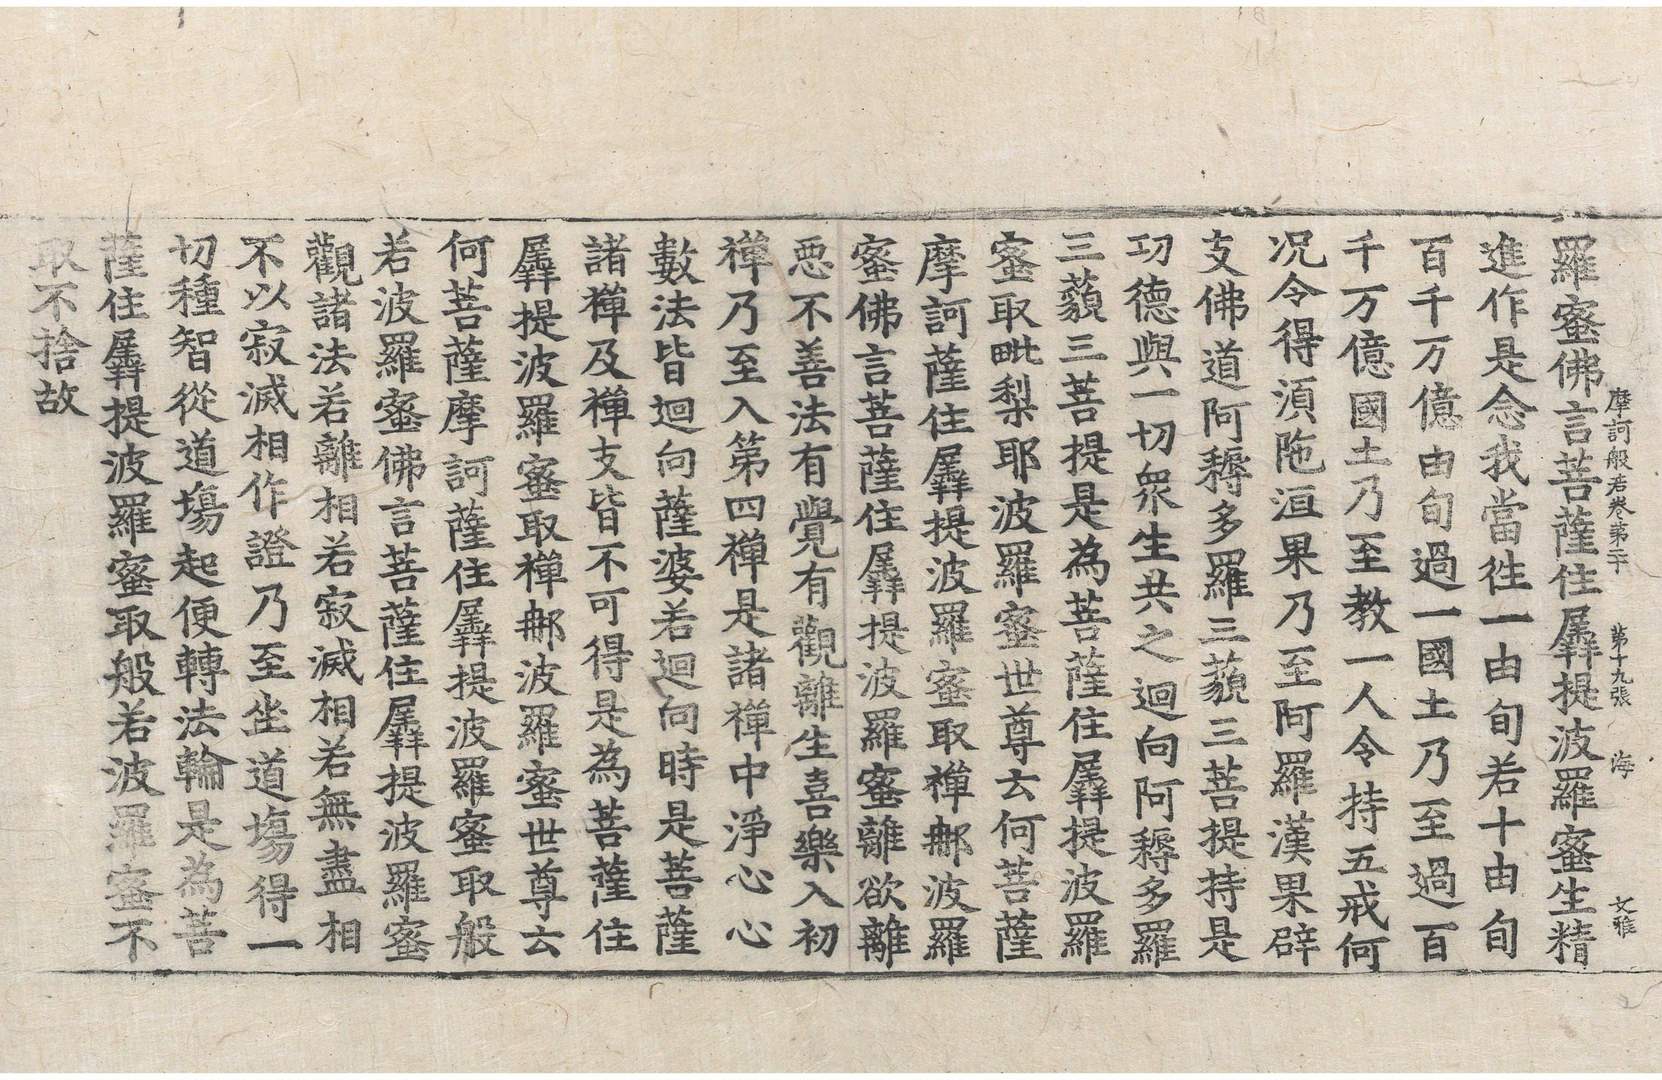 摩訶般若卷第二十 第十九張 海 文雅
羅蜜佛言菩薩住羼提波羅蜜生精
進作是念我當徃一由旬若十由旬
百千万億由旬過一國土乃至過百
千万億國土乃至教一人令持五戒何
况令得湏陁洹果乃至阿羅漢果辟
支佛道阿耨多羅三藐三菩提持是
功德與一切衆生共之迴向阿耨多羅
三藐三菩提是為菩薩住羼提波羅
蜜取毗梨耶波羅蜜世尊云何菩薩
摩訶薩住羼提波羅蜜取禪那波羅
蜜佛言菩薩住羼提波羅蜜離欲離
惡不善法有覺有觀離生喜樂入初
禪乃至入第四禪是諸禪中淨心心
數法皆迴向薩婆若迴向時是菩薩
諸禪及禪支皆不可得是為菩薩住
羼提波羅蜜取禪那波羅蜜世尊云
何菩薩摩訶薩住羼提波羅蜜取般
若波羅蜜佛言菩薩住羼提波羅蜜
觀諸法若離相若寂滅相若無盡相
不以寂滅相作證乃至坐道塲得一
切種智從道塲起便轉法輪是為菩
薩住羼提波羅蜜取般若波羅蜜不
取不捨故